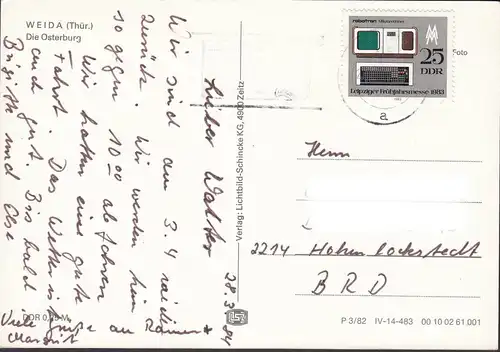 WEIDA (Thür.)
Die Osterburg
28.3.84
Lieber Walter
Wir sind am 3.4 wieder
zurück. Wir werden hier
so gegen 10 00 abfahren
Wir hatten eine gute
Fahrt. Das Wetter ist
auch gut. Bis bald
Brigitte und Ilse
Viele Grüße an
Margrit
DDR 0,25 M
Verlag: Lichtbild-Schincke KG, 4900 Zeitz
robotron
25
DDR
Leipziger Frühjahrsmesse 1983
Foto
a
Herrn
2214 Hohenlockstedt
BRD
P 3/82 IV-14-483 00 10 02 61 001